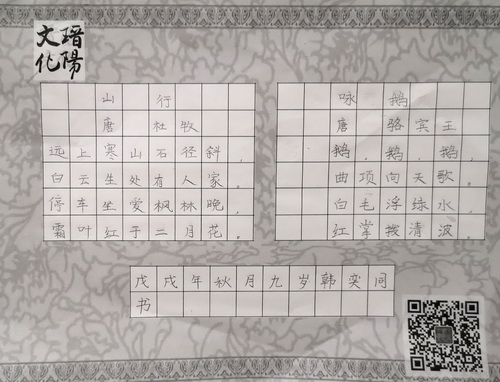 瑨陽
文化
山行
唐 杜牧
远上寒山石径斜，
白云生处有人家。
停车坐爱枫林晚，
霜叶红于二月花。
咏鹅
唐 骆宾王
鹅，鹅，鹅，
曲项向天歌。
白毛浮绿水，
红掌拨清波。
戊戌年秋月九岁韩奕同
书